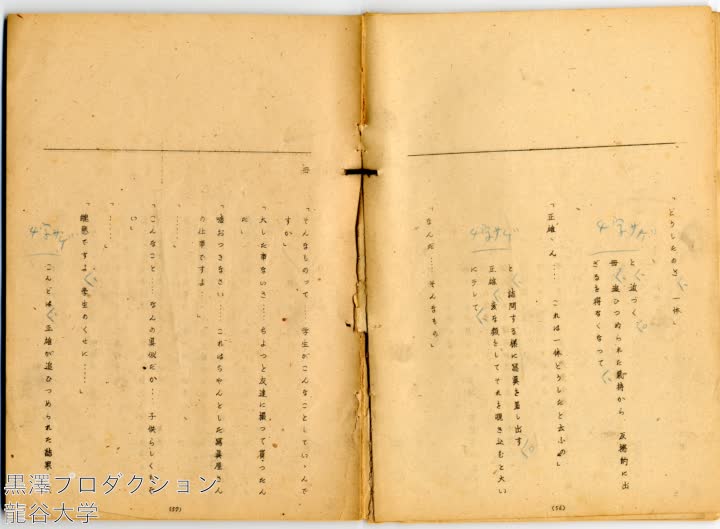 「どうしたのさ 一体」
4字サゲ
と 近づく
毋 追ひつめられた気持から 反撥的に出
ざるを得なくなつて
「正雄 ん…… これは一体どうしたと云ふの」
4字サゲ
と 詰問する様に写真を差し出す
正雄 変な顔をしてそれを覗き込むと大い
にテレて
「なんだ……そんなもの」
(56)
母
「そんなものつて……学生がこんなことしてい んで
すか」
「大した事ないさ……ちよつと友達に撮つて貰つたん
だ」
「嘘おつきなさい…… これはちやんとした写真屋さん
の仕事ですよ……」
「……」
「こんなこと……なんの真似だか… 子供らしくもな
い」
「……」
「嫌悪ですよ 学生のくせに……」
4字サゲ
こんどは 正雄が追ひつめられた結果
(57)
黒澤プロダクション
龍谷大学